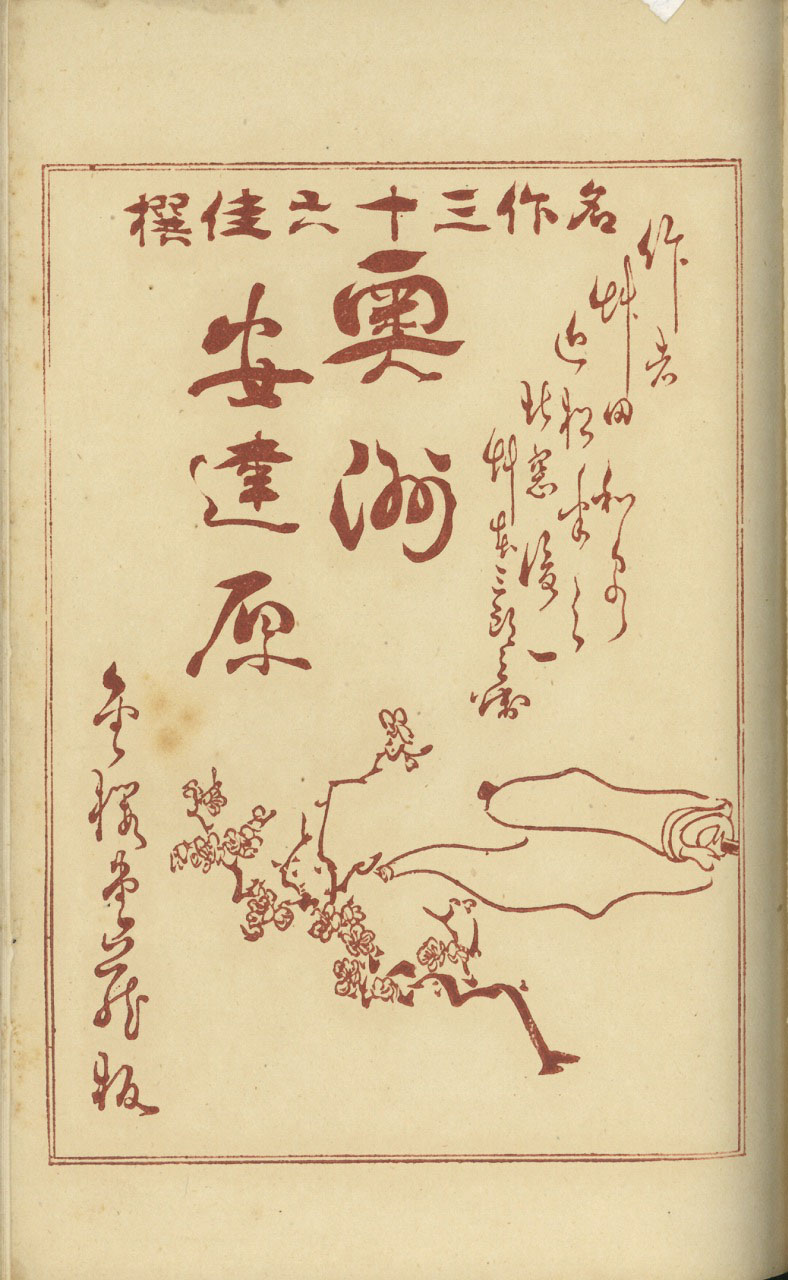 名作三十六佳撰
作者
竹田和泉
近松半二
北窓後一
竹本三郎兵衛
奥州
安達原
金桜堂蔵板